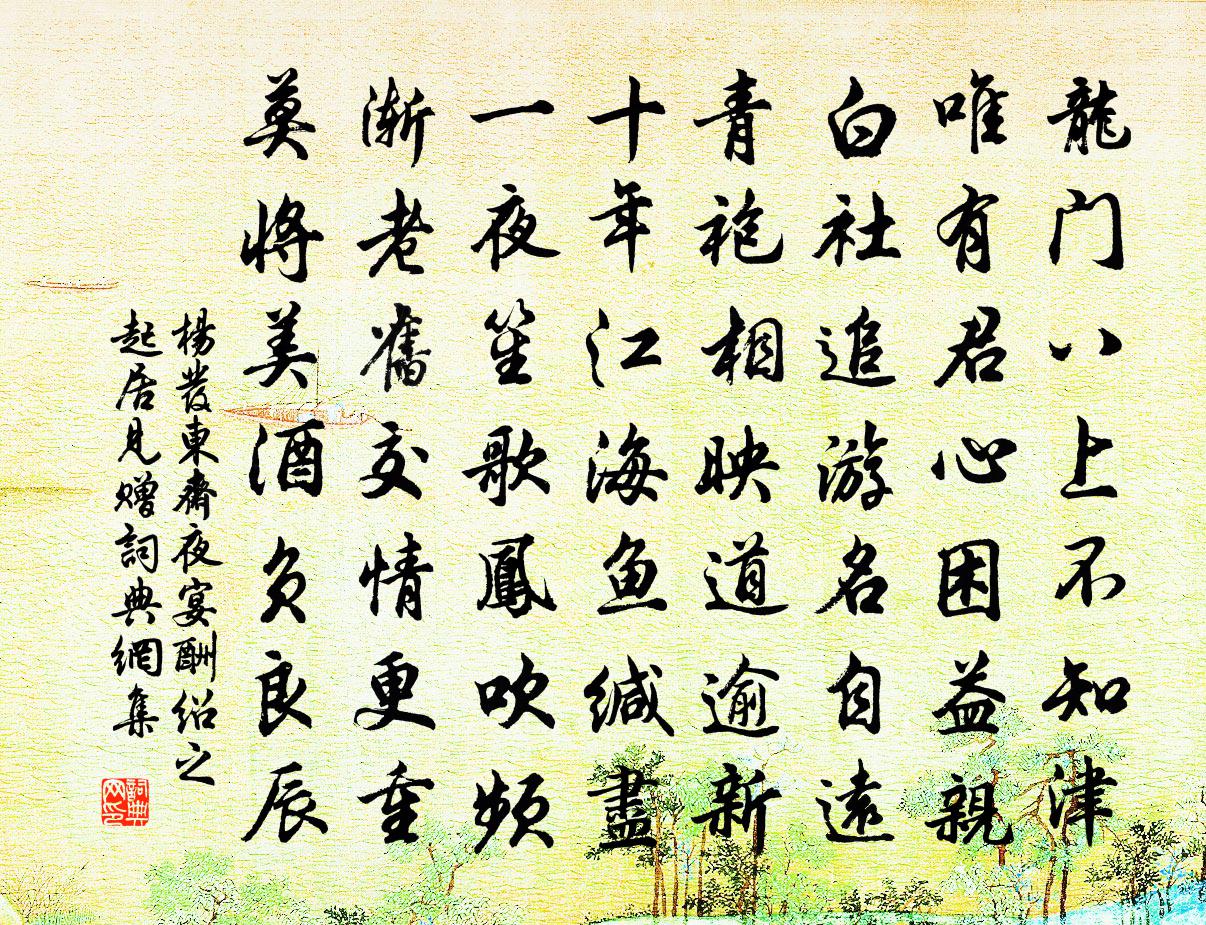 龍门八上不知津
唯有君心困益親
白社追游名自遠
青袍相映道逾新
十年江海魚缄盡
一夜笙歌鳳吹頻
渐老舊交情更重
莫將美酒负良辰
楊發東齋夜宴酬绍之
起居見贈詞典網集
詞典
网印